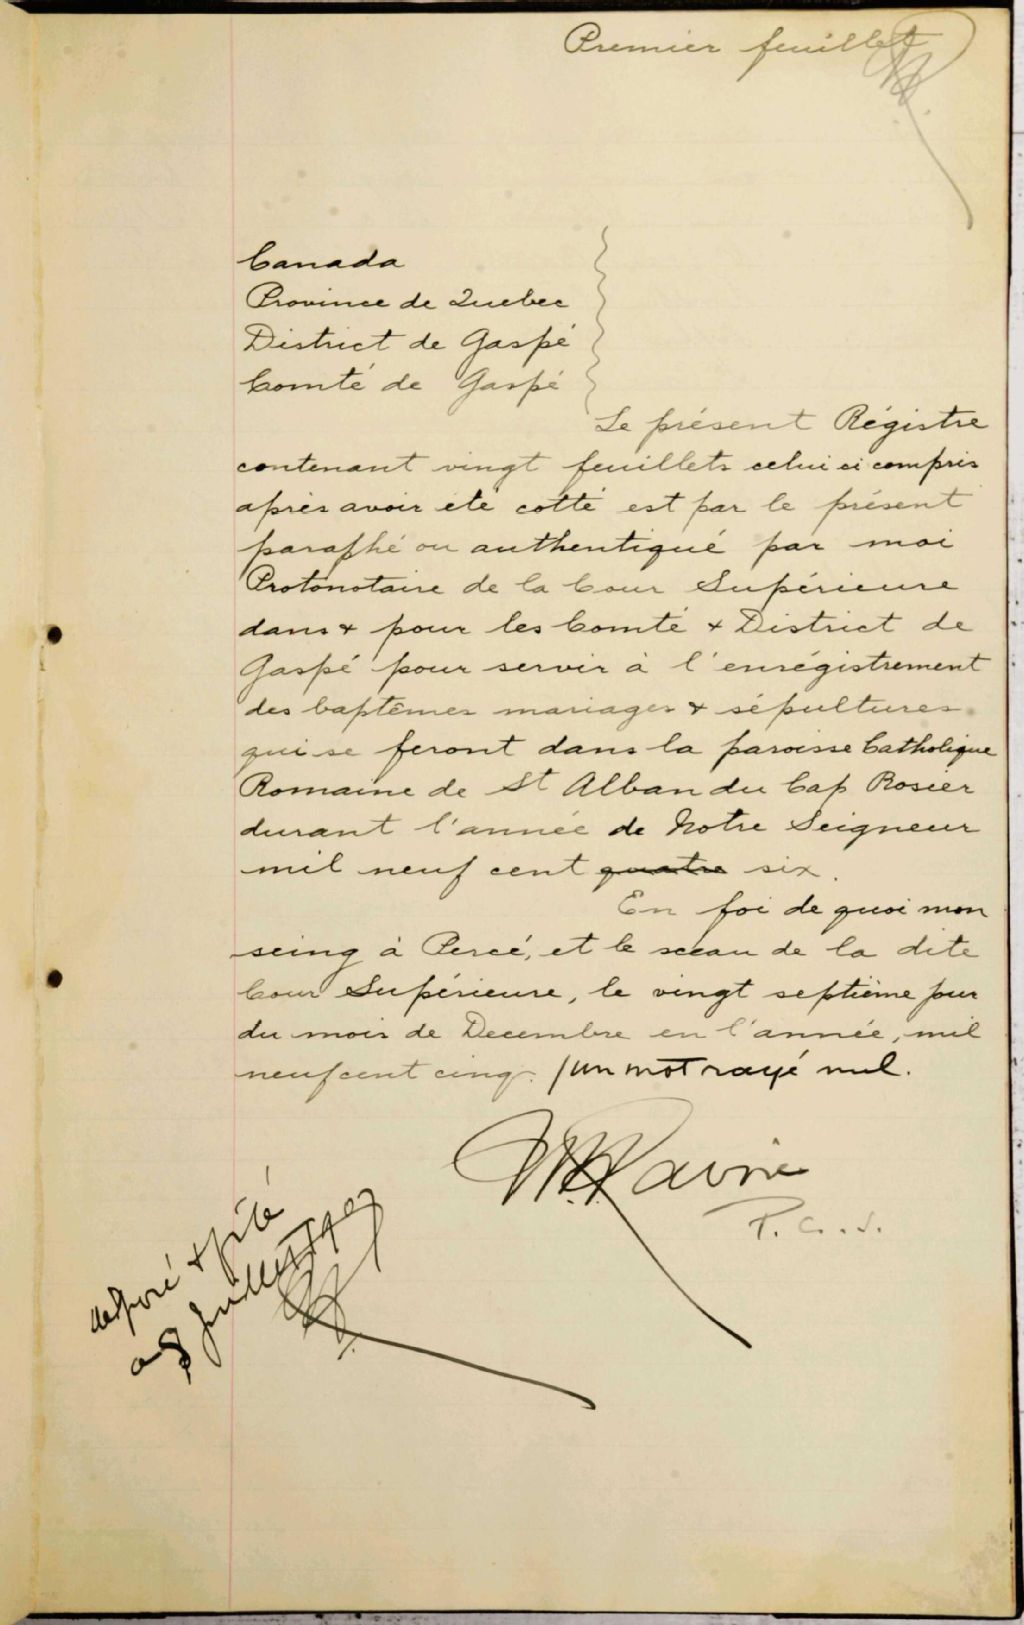 Premier feuillet
Canada
Province de Quebec
District de Gaspé
Comté de Gaspé
Le présent Régistre
contenant vingt feuillets celui ci compris
après avoir été cotté est par le présent
paraphé ou authentiqué par moi
Protonotaire de la Cour Supérieure
dans & pour les Comté & District de
Gaspé pour servir à l'enrégistrement
des baptêmes mariages & sépultures
qui se feront dans la paroisse Catholique
Romaine de St Alban du Cap Rosier
durant l'année de Notre Seigneur
mil neuf cent quatre six.
En foi de quoi mon
seing à Percé, et le sceau de la dite
Cour Supérieure, le vingt septième jour
du mois de Decembre en l'année, mil
neuf cent cinq. / un mot rayé nul.
P. C. S.